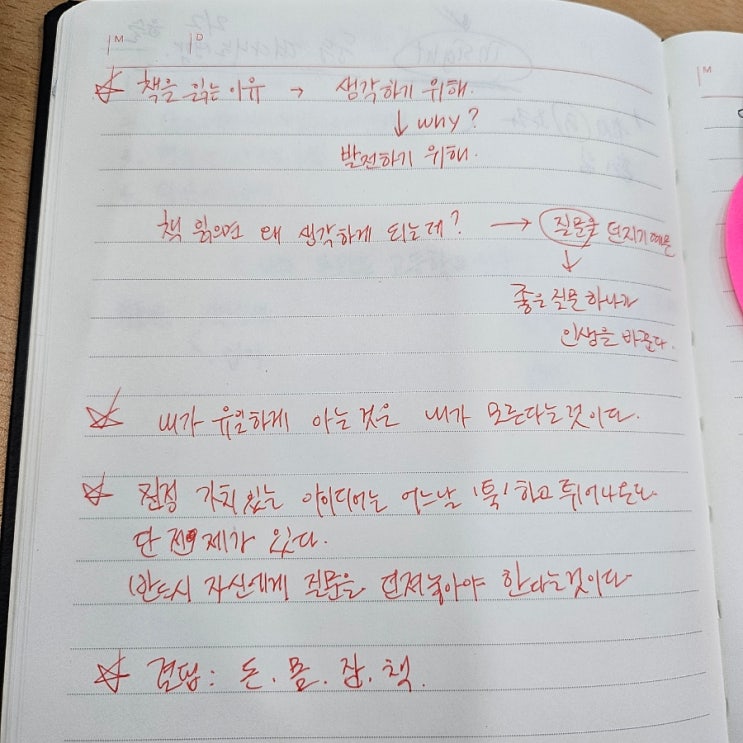 M D
☆ 책을 읽는 이유 → 생각하기 위해.
↓ why?
발전하기 위해.
책 읽으면 왜 생각하게 되는데? → 질문을 던지기 때문
↓
좋은 질문 하나가
인생을 바꾼다.
☆ 내가 유일하게 아는 것은 내가 모른다는 것이다.
☆ 진정 가치 있는 아이디어는 어느날 '툭' 하고 튀어나온다
단 전제가 있다.
(반드시 자신에게 질문을 던져놓아야 한다는 것이다
☆ 결핍: 돈. 몸. 잠. 책.
M